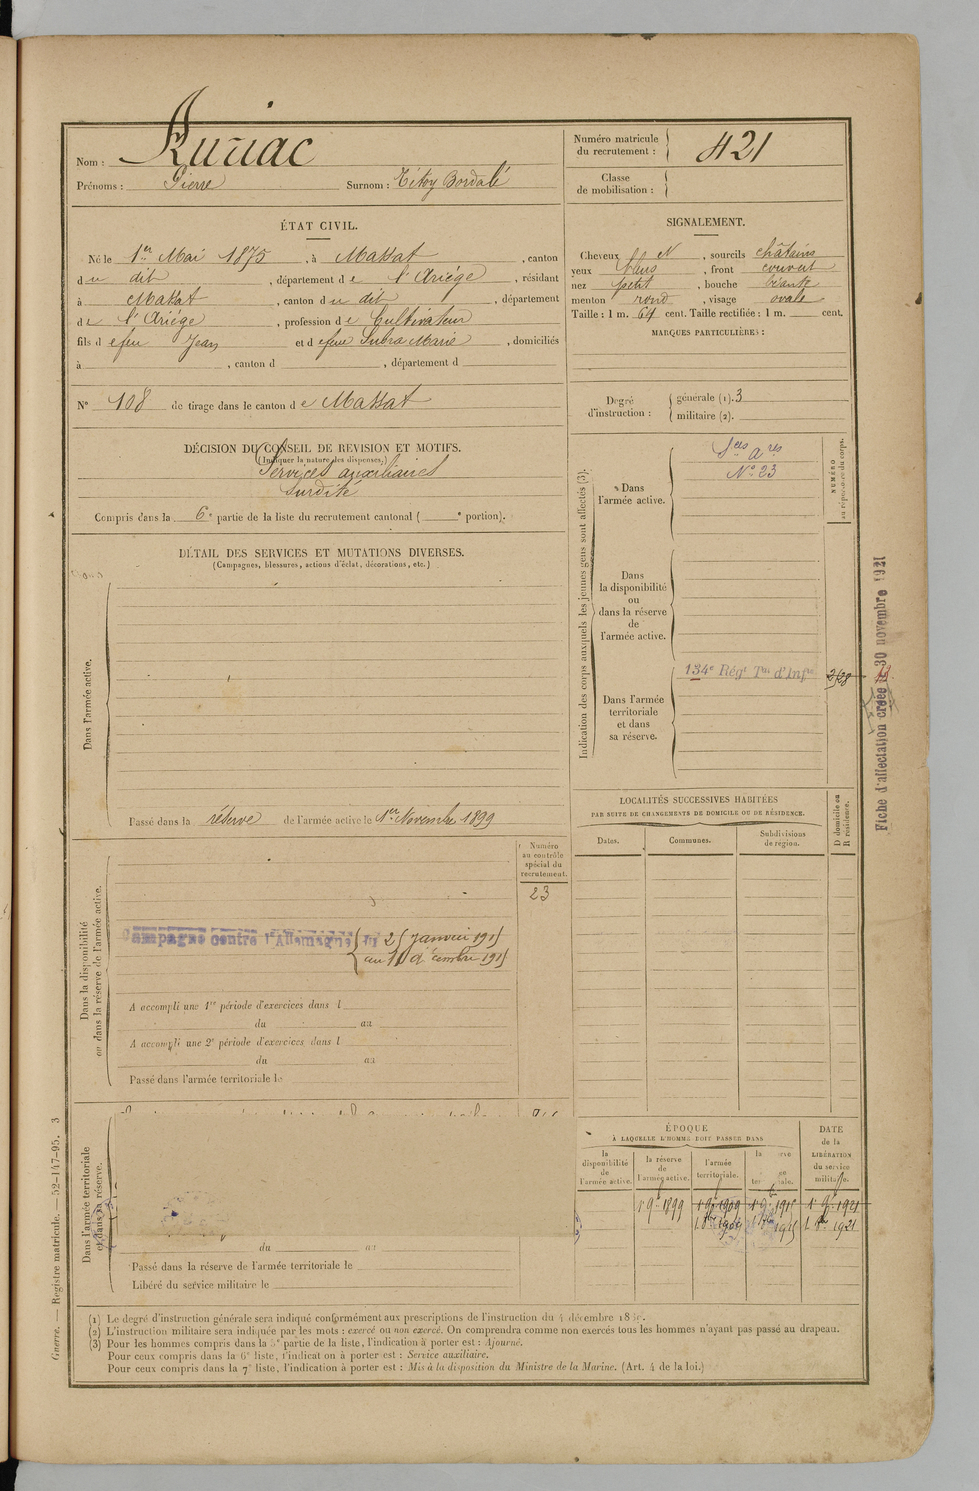 Nom : Auriac
Prénoms : Pierre Surnom : Bordalé
Numéro matricule du recrutement : 421
Classe de mobilisation :
ÉTAT CIVIL.
Né le 1er Mai 1875, à Massat, canton
du dit, département de l'Ariége, résidant
à Massat, canton du dit, département
de l'Ariége, profession de Cultivateur
fils de feu Jean et de feue Subra Marie, domiciliés
à , canton d , département d
N° 108 de tirage dans le canton de Massat
SIGNALEMENT.
Cheveux N, sourcils châtains
yeux bleus, front couvert
nez petit, bouche béante
menton rond, visage ovale
Taille : 1 m. 64 cent. Taille rectifiée : 1 m. cent.
MARQUES PARTICULIÈRES :
Degré d'instruction : générale (1). 3
militaire (2).
DÉCISION DU CONSEIL DE REVISION ET MOTIFS.
(Indiquer la nature des dispenses.)
Services auxiliaires
Surdité
Compris dans la 6e partie de la liste du recrutement cantonal ( e portion).
DÉTAIL DES SERVICES ET MUTATIONS DIVERSES.
(Campagnes, blessures, actions d'éclat, décorations, etc.)
Dans l'armée active.
Passé dans la réserve de l'armée active le 1er Novembre 1899
Indication des corps auxquels les jeunes gens sont affectés (3).
NUMÉRO au répertoire du corps.
Dans l'armée active.
Sces Ares
N° 23
Dans la disponibilité ou dans la réserve de l'armée active.
Dans l'armée territoriale et dans sa réserve.
134e Régt Tal d'Infie
Fiche d'affectation créée le 30 novembre 1921
LOCALITÉS SUCCESSIVES HABITÉES
PAR SUITE DE CHANGEMENTS DE DOMICILE OU DE RÉSIDENCE.
D domicile ou R résidence.
Dates. Communes. Subdivisions de région.
Dans la disponibilité ou dans la réserve de l'armée active.
Numéro au contrôle spécial du recrutement.
23
Campagne contre l'Allemagne du 25 janvier 1915
au 10 décembre 1915
A accompli une 1re période d'exercices dans l
du au
A accompli une 2e période d'exercices dans l
du au
Passé dans l'armée territoriale le
Dans l'armée territoriale et dans sa réserve.
du au
Passé dans la réserve de l'armée territoriale le
Libéré du service militaire le
ÉPOQUE
À LAQUELLE L'HOMME DOIT PASSER DANS
DATE de la LIBÉRATION du service militaire.
la disponibilité de l'armée active. la réserve de l'armée active. l'armée territoriale.
1er 9bre 1899 1er 9bre 1909 1er 9bre 1915 1er 9bre 1921
(1) Le degré d'instruction générale sera indiqué conformément aux prescriptions de l'instruction du 4 décembre
(2) L'instruction militaire sera indiquée par les mots : exercé ou non exercé. On comprendra comme non exercés tous les hommes n'ayant pas passé au drapeau.
(3) Pour les hommes compris dans la 5e partie de la liste, l'indication à porter est : Ajourné.
Pour ceux compris dans la 6e liste, l'indication à porter est : Service auxiliaire.
Pour ceux compris dans la 7e liste, l'indication à porter est : Mis à la disposition du Ministre de la Marine. (Art. 4 de la loi.)
Guerre. — Registre matricule. — 52-147-95. 3